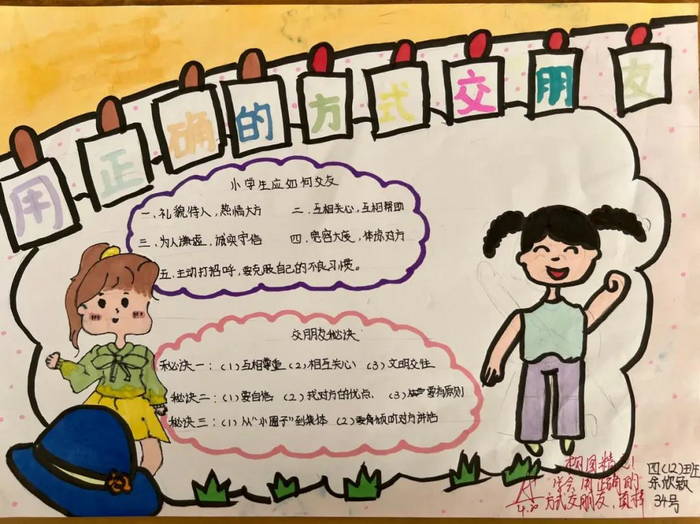 用正确的方式交朋友
小学生应如何交友
一、礼貌待人，热情大方 二、互相关心，互相帮助
三、为人谦虚，诚实守信 四、宽容大度，体谅对方
五、主动打招呼，要克服自己的不良习惯。
交朋友秘诀
秘诀一：(1)互相尊重 (2)相互关心 (3)文明交往
秘诀二：(1)要自信 (2)找对方的优点 (3)要有原则
秘诀三：(1)从“小圈子”到集体 (2)要倾听对方讲话
四(12)班
34号
学会用正确的
方式交朋友，真棒